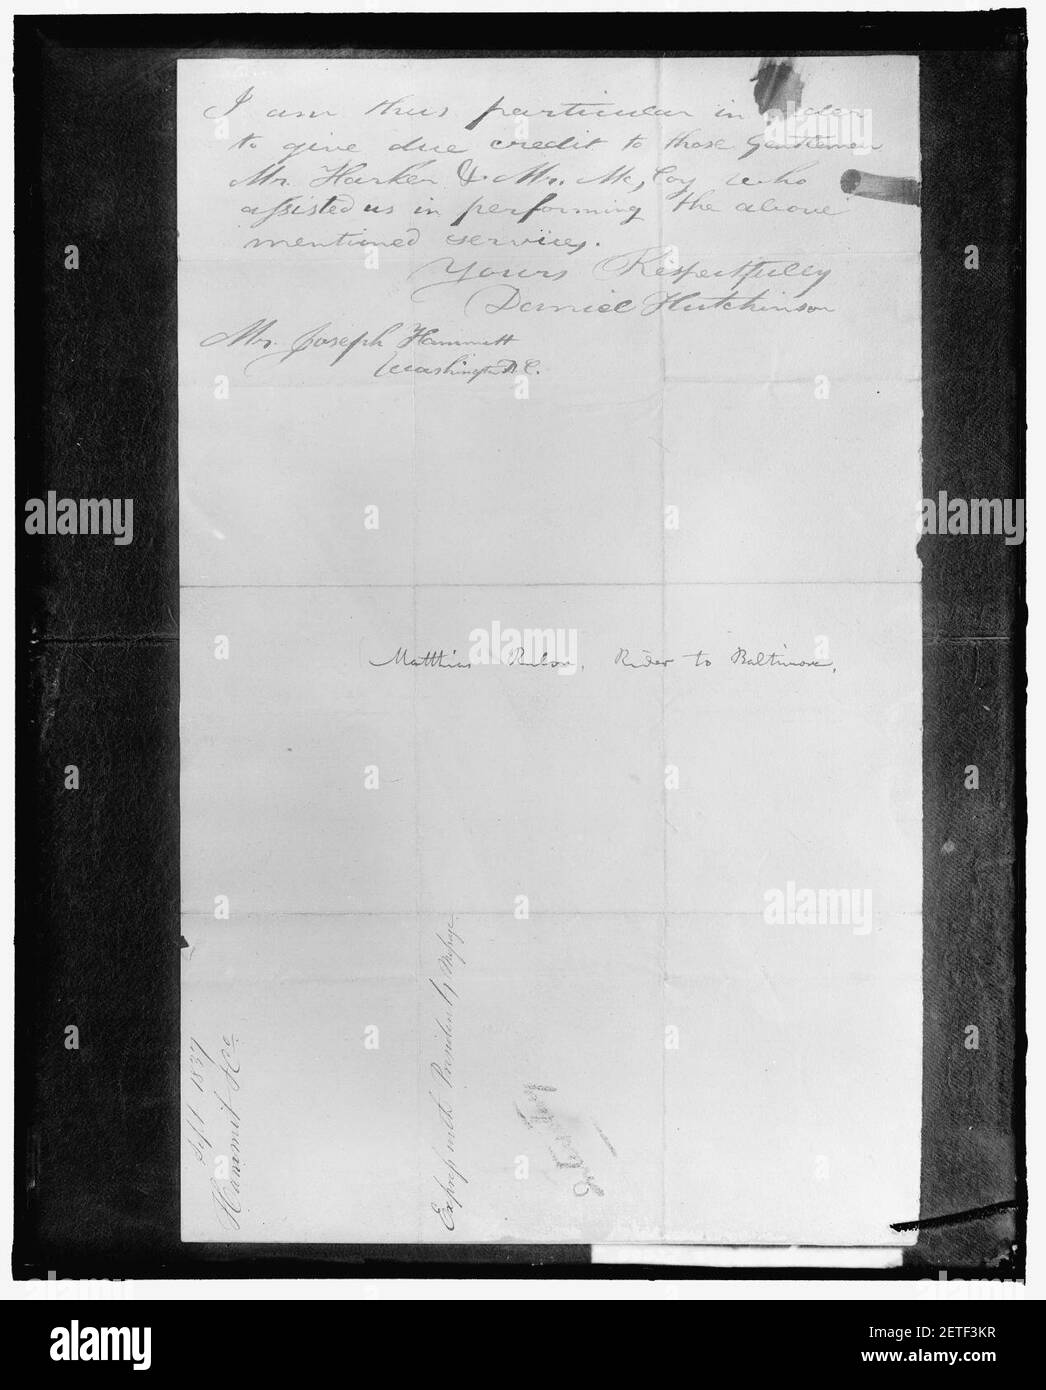 I am thus particular in order
to give due credit to those Gentlemen
Mr. Harker & Mr. McCoy who
assisted us in performing the above
mentioned services.
Yours Respectfully
Daniel Hutchinson
Mr. Joseph Hammitt
Washington D.C.
Matthias , Rider to Baltimore,
Sept 1837
Hammit
Express with Presidents Message
alamy
Image ID: 2ETF3KR
www.alamy.com